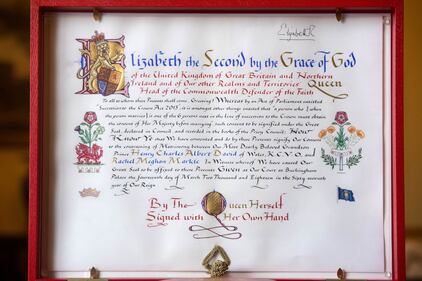 Elizabeth R
Elizabeth the Second by the Grace of God
of the United Kingdom of Great Britain and Northern
Ireland and of Our other Realms and Territories Queen
Head of the Commonwealth Defender of the Faith
To all to whom these Presents shall come, Greeting! Whereas by an Act of Parliament entitled
Succession to the Crown Act 2013, it is amongst other things enacted that "a person who (when
the person marries) is one of the 6 persons next in the line of succession to the Crown must obtain
the consent of Her Majesty before marrying" such consent to be signified under the Great
Seal, declared in Council, and recorded in the books of the Privy Council: Now
Know Ye that We have consented and do by these Presents signify Our Consent
to the contracting of Matrimony between Our Most Dearly Beloved Grandson
Prince Henry Charles Albert David of Wales, K.C.V.O., and
Rachel Meghan Markle. In Witness whereof We have caused Our
Great Seal to be affixed to these Presents Given at Our Court at Buckingham
Palace the fourteenth day of March Two Thousand and Eighteen in the Sixty-seventh
year of Our Reign
By The Queen Herself
Signed with Her Own Hand